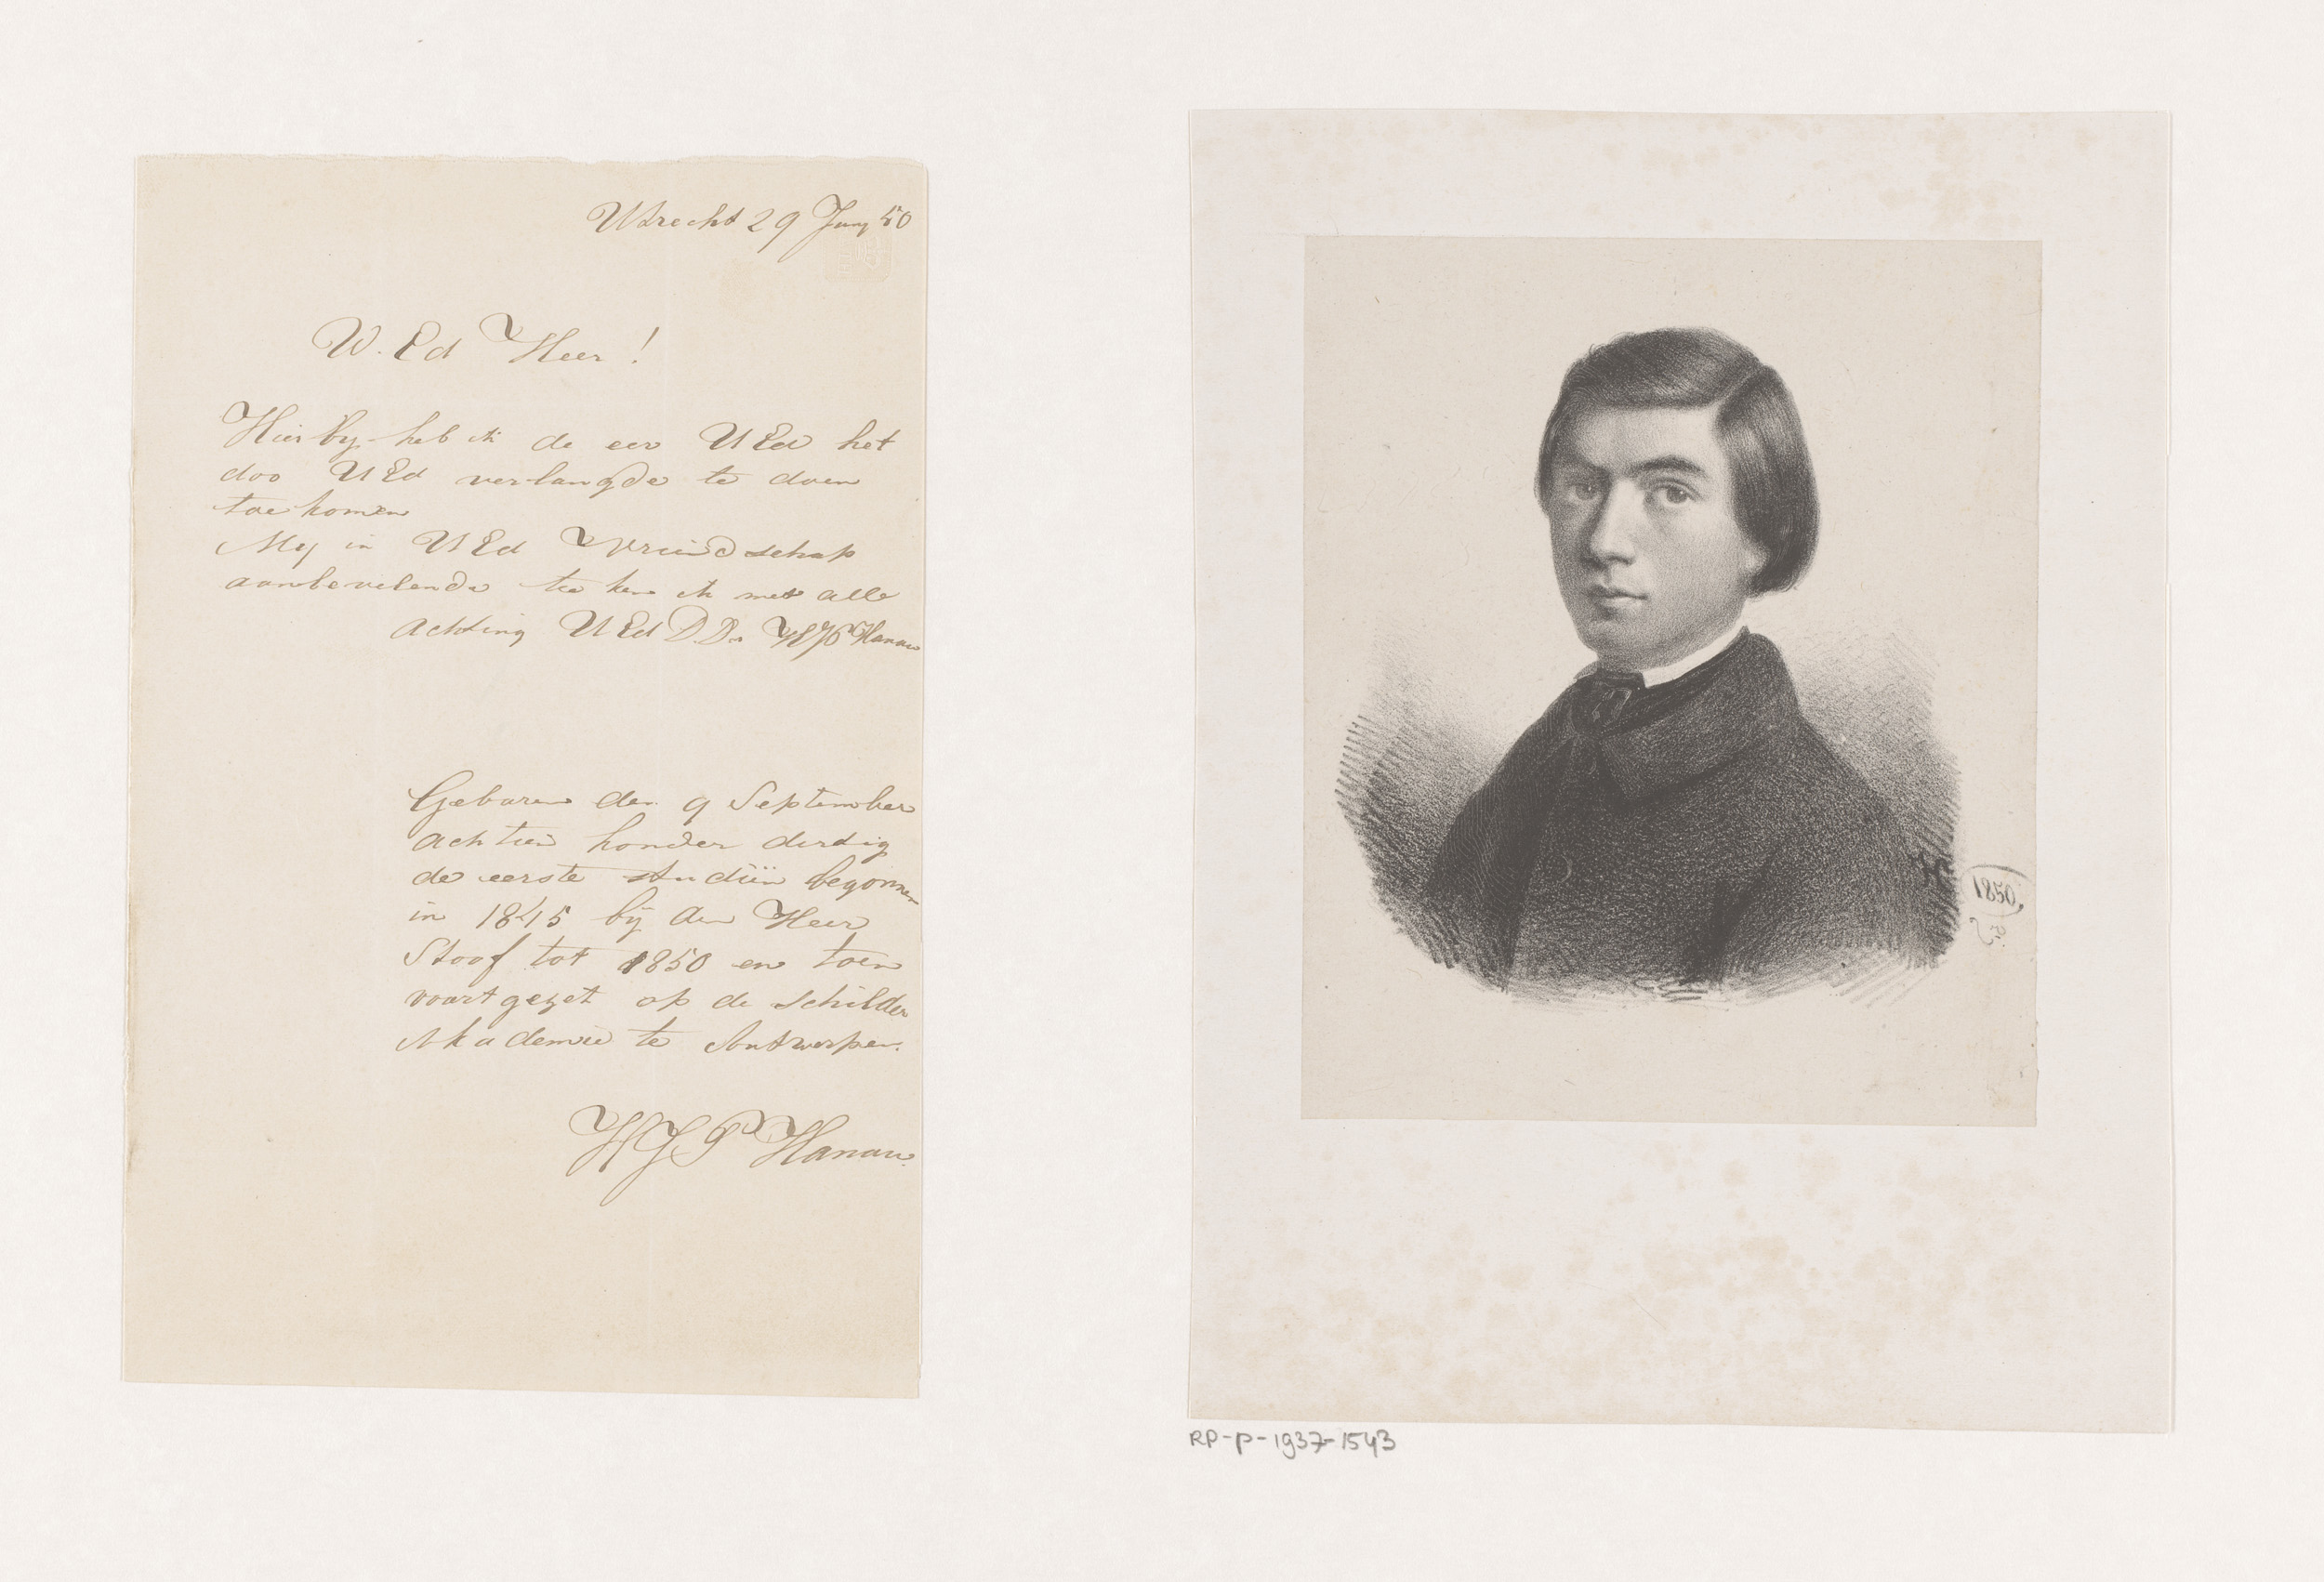 Utrecht 29 Juny 50
W. Ed Heer!
Hierby heb ik de eer UEd het
doo UEd verlangde te doen
toe komen
My in UEd Vriendschap
aanbevelende tee ken ik met alle
achting UEd D.D. HJP Hanau
Geboren den 9 September
achtien honder dertig
de eerste studiïn begonnen
in 1845 bij den Heer
Stoof tot 1850 en toen
voortgezet op de schilder
Akademie te Antwerpen.
HJP Hanau.
1850
RP-P-1937-1543